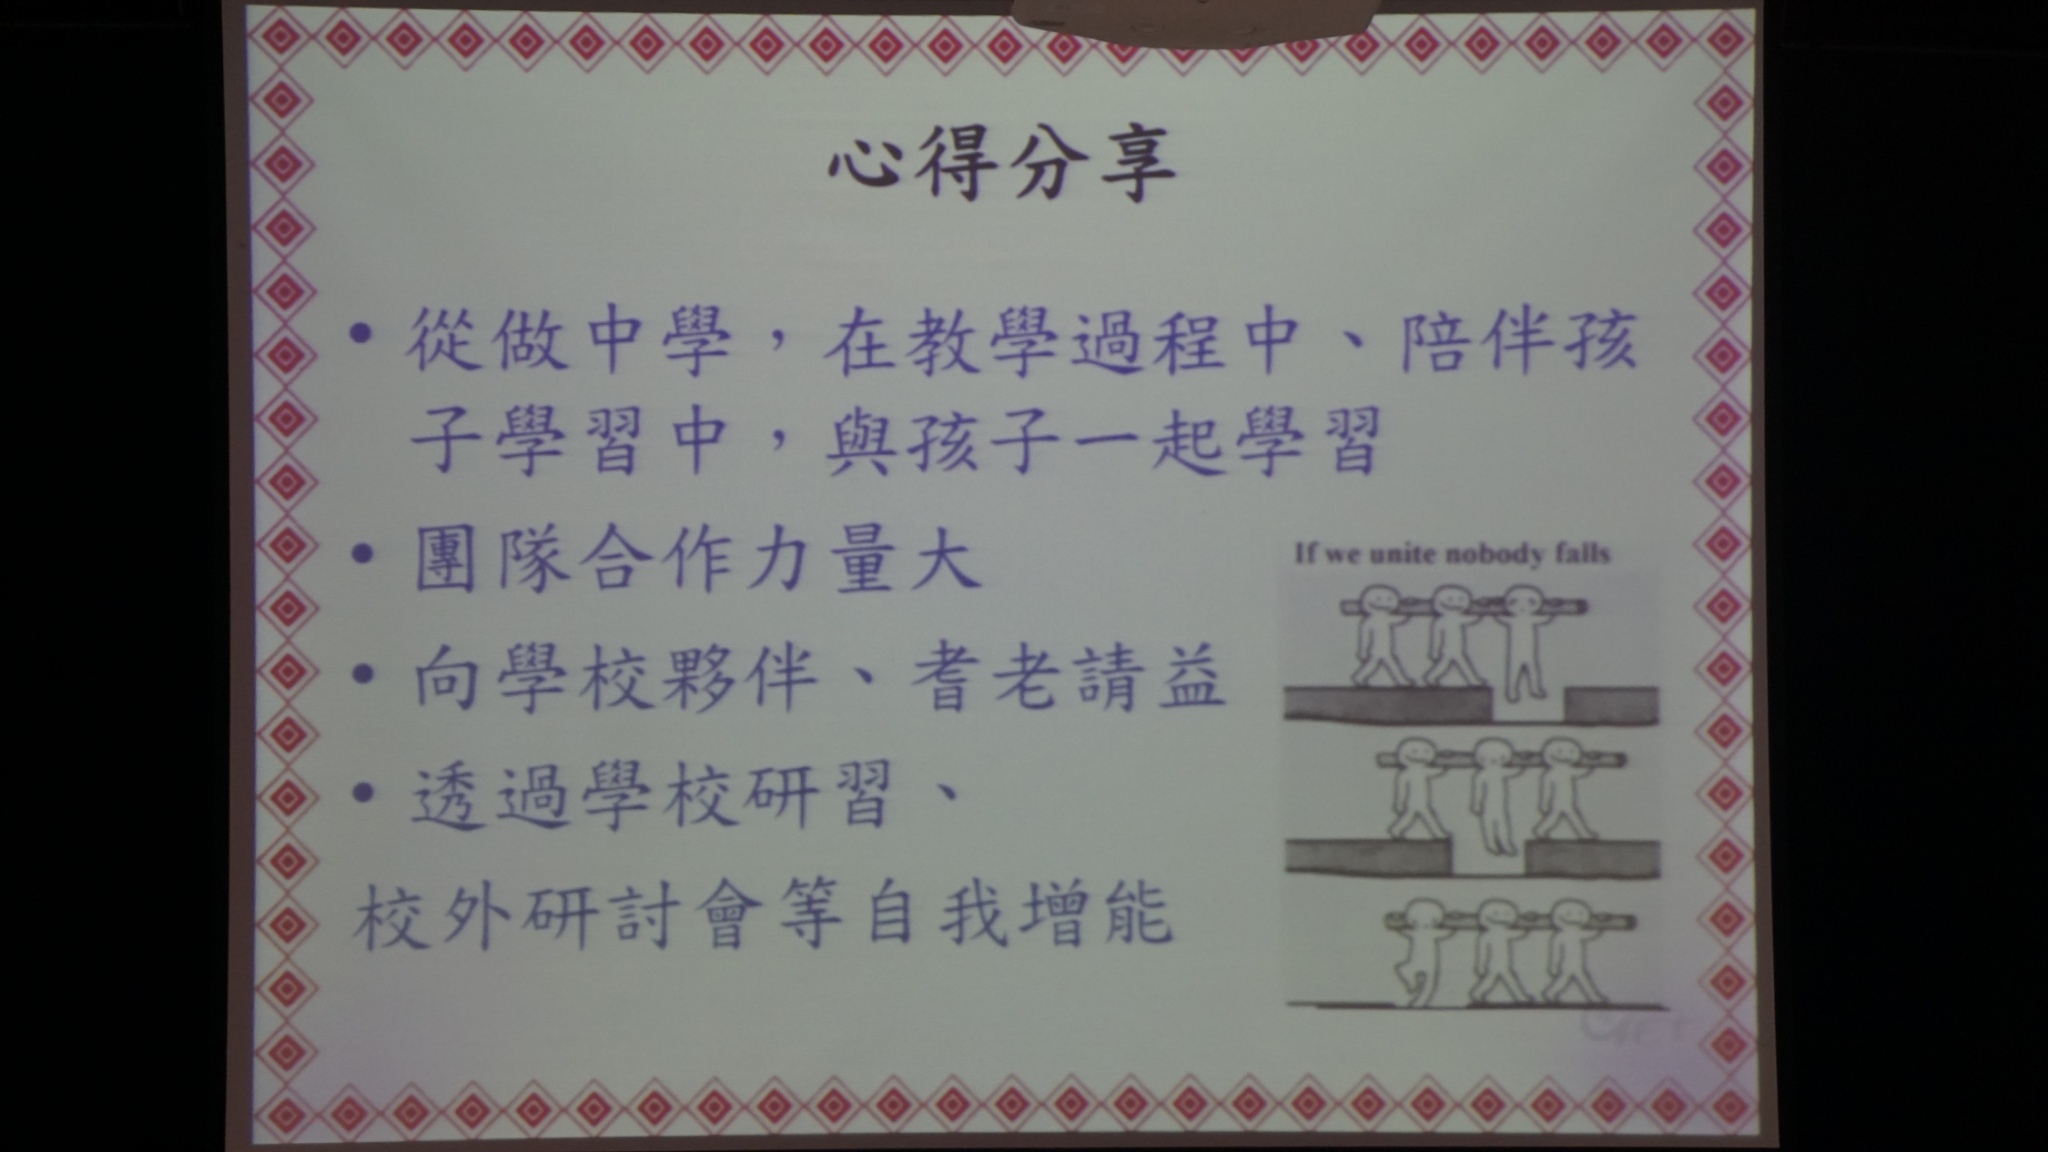 心得分享
• 從做中學，在教學過程中、陪伴孩
子學習中，與孩子一起學習
• 團隊合作力量大
• 向學校夥伴、耆老請益
• 透過學校研習、
校外研討會等自我增能
If we unite nobody falls